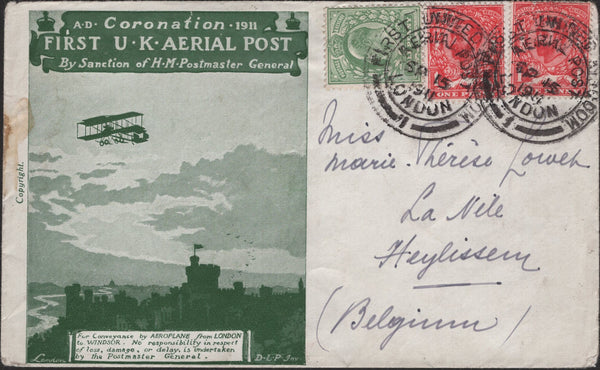 A·D· Coronation ·1911
FIRST U·K·AERIAL POST
By Sanction of H·M·Postmaster General
Copyright.
For Conveyance by AEROPLANE from LONDON
to WINDSOR. No responsibility in respect
of loss, damage, or delay, is undertaken
by the Postmaster General.
London
D·L·P·Inv
FIRST UNITED KINGDOM
AERIAL POST
SP 15
1911
LONDON
1
ONE P
AERIAL POST
1911
LONDON
1
Miss
Marie-Thérèse
La Nile
Heylissem
(Belgium)